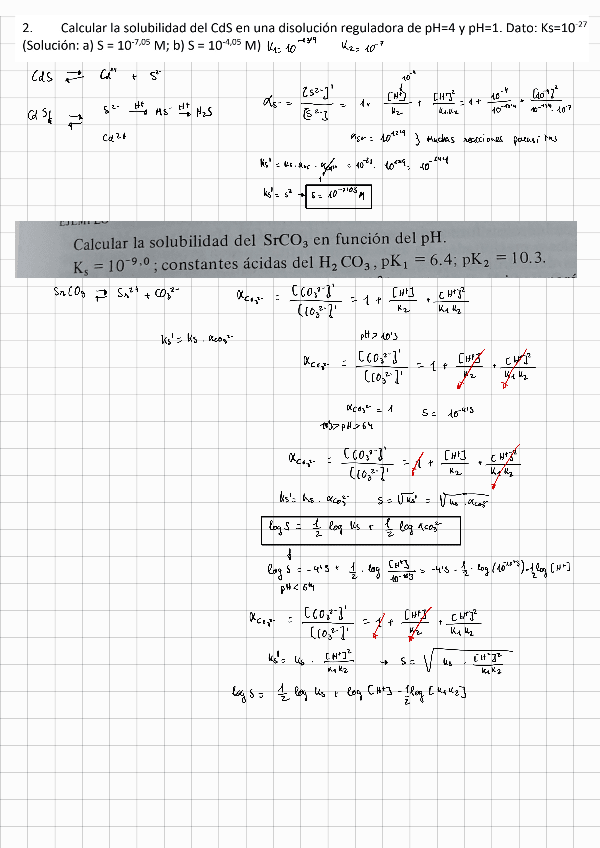 2. Calcular la solubilidad del CdS en una disolución reguladora de pH=4 y pH=1. Dato: Ks=10⁻²⁷
(Solución: a) S = 10⁻⁷,⁰⁵ M; b) S = 10⁻⁴,⁰⁵ M) K₁ = 10⁻¹²'⁹ K₂ = 10⁻⁷
CdS ⇄ Cd²⁺ + S²⁻
10⁻⁴
αs = [S²⁻]' / [S²⁻] = 1 + [H⁺]/K₂ + [H⁺]²/K₁K₂ = 1 + 10⁻⁴/10⁻¹²'⁹ + [10⁻⁴]²/10⁻¹²'⁹·10⁻⁷
S²⁻ →(H⁺) HS⁻ →(H⁺) H₂S
Cd²⁺
} Muchas reacciones
Ks' = S² → S = 10⁻⁷'⁰⁵ M
Calcular la solubilidad del SrCO₃ en función del pH.
Kₛ = 10⁻⁹·⁰; constantes ácidas del H₂CO₃, pK₁ = 6.4; pK₂ = 10.3.
SrCO₃ ⇄ Sr²⁺ + CO₃²⁻
αCO₃²⁻ = [CO₃²⁻]' / [CO₃²⁻] = 1 + [H⁺]/K₂ + [H⁺]²/K₁K₂
Ks' = Ks · αCO₃²⁻
pH > 10'3
αCO₃²⁻ = [CO₃²⁻]' / [CO₃²⁻] = 1 + [H⁺]/K₂ + [H⁺]²/K₁K₂
αCO₃²⁻ = 1 S = 10⁻⁴'⁵
10'3 > pH > 6'4
αCO₃²⁻ = [CO₃²⁻]' / [CO₃²⁻] = 1 + [H⁺]/K₂ + [H⁺]²/K₁K₂
Ks' = Ks · αCO₃²⁻ S = √Ks' = √Ks · αCO₃²⁻
log S = 1/2 log Ks + 1/2 log αCO₃²⁻
log S = -4'5 + 1/2 · log [H⁺]/10⁻¹⁰'³ = -4'5 - 1/2 · log (10⁻¹⁰'³) - 1/2 log [H⁺]
pH < 6'4
αCO₃²⁻ = [CO₃²⁻]' / [CO₃²⁻] = 1 + [H⁺]/K₂ + [H⁺]²/K₁K₂
Ks' = Ks · [H⁺]²/K₁K₂ → S = √Ks · [H⁺]²/K₁K₂
log S = 1/2 log Ks + log [H⁺] - 1/2 log [K₁K₂]